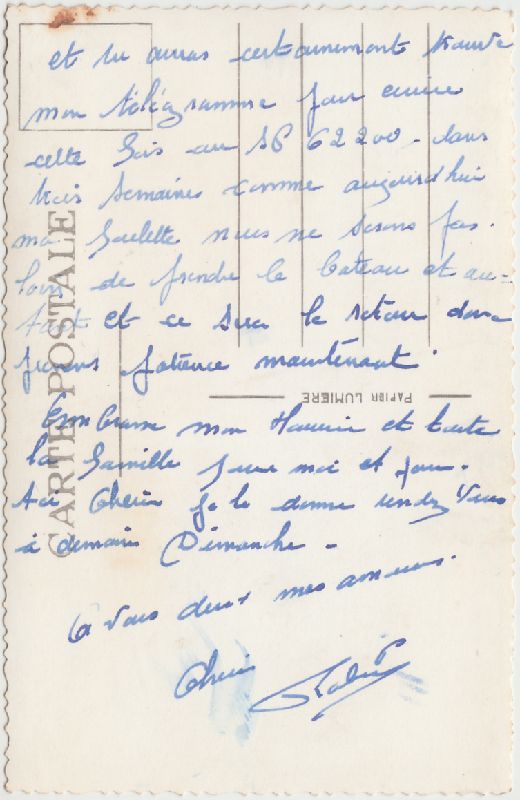 et tu auras certainement trouvé
mon télégramme pour écrire
cette fois au SP 62200. dans
trois semaines comme aujourd'hui
ma Goulette nous ne serons pas
loin de prendre le bateau et au-
tant et ce sera le retour donc
prenons patience maintenant.
Embrasse mon Maurice et toute
la famille pour moi et pour
toi Chérie je te donne rendez vous
à demain Dimanche -
A vous deux mes amours.
Chéri
CARTE POSTALE
PAPIER LUMIERE